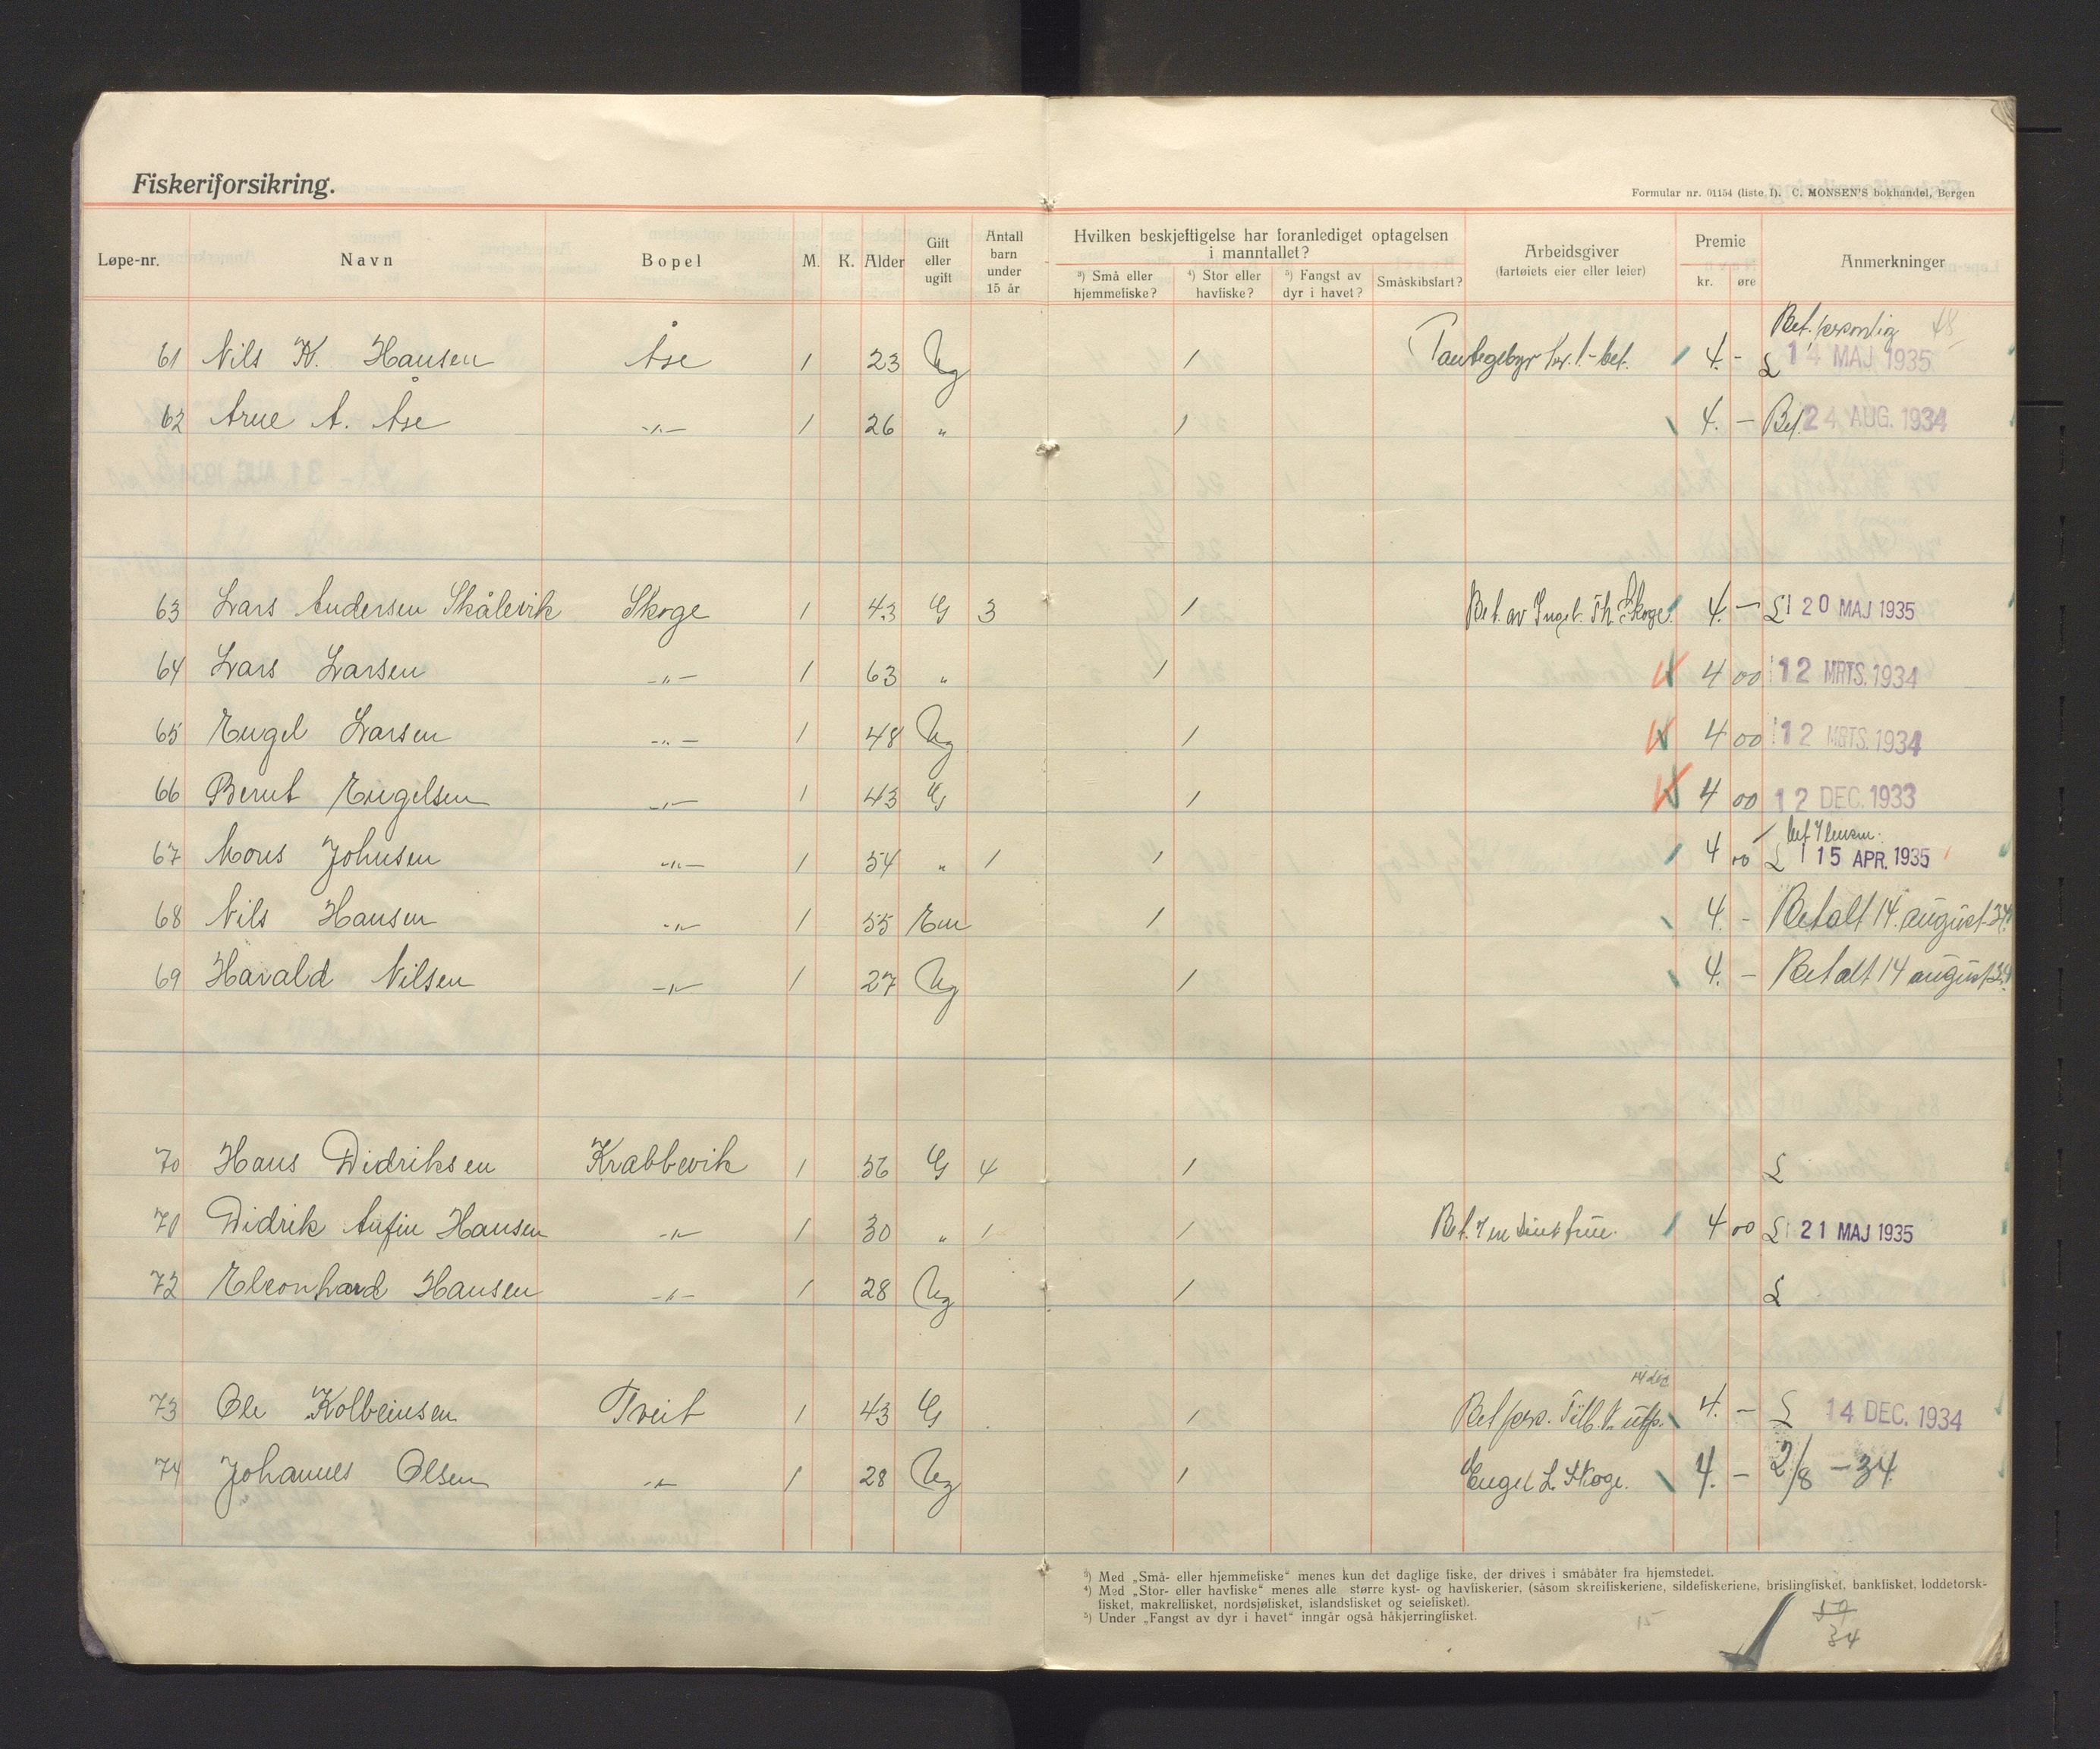 Fiskeriforsikring.
Formular nr. 01154 (liste I). C. MONSEN'S bokhandel, Bergen
Løpe-nr. Navn Bopel M. K. Alder Gift eller ugift Antall barn under 15 år Hvilken beskjeftigelse har foranlediget optagelsen i manntallet? ³) Små eller hjemmefiske? ⁴) Stor eller havfiske? ⁵) Fangst av dyr i havet? Småskibsfart? Arbeidsgiver (fartøiets eier eller leier) Premie kr. øre Anmerkninger
Bet. personlig 48
61 Nils K. Hansen Åse 1 23 Ug 1 Pantegebyr kr. 1.- bet. 4. - £ 14 MAJ 1935
62 Arne A. Åse -"- 1 26 " 1 4. - Bet. 24 AUG. 1934
63 Lars Andersen Skålevik Skoge 1 43 G 3 1 Bet. av Ingel. Th. Skoge. 4. - £ 20 MAJ 1935
64 Lars Larsen -"- 1 63 " 1 4 00 12 MRTS. 1934
65 Engel Larsen -"- 1 48 Ug 1 4 00 12 MRTS. 1934
66 Bernt Engelsen -"- 1 43 G 1 4 00 12 DEC. 1933
67 Mons Johnsen -"- 1 54 " 1 1 4 00 £ 15 APR. 1935
68 Nils Hansen -"- 1 55 Em 1 4. - Betalt 14. august 34.
69 Harald Nilsen -"- 1 27 Ug 1 4. - Betalt 14 august 34.
70 Hans Didriksen Krabbevik 1 56 G 4 1 £
71 Didrik Anfin Hansen -"- 1 30 " 1 1 Bet. 4 00 £ 21 MAJ 1935
72 Eleonhard Hansen -"- 1 28 Ug 1 £
14 dec
73 Ole Kolbeinsen Tveit 1 43 G 1 Bet pers. Tilb. k. utp. 4. - £ 14 DEC. 1934
74 Johannes Olsen -"- 1 28 Ug 1 Engel L. Skoge. 4. - 2/8 - 34.
³) Med „Små- eller hjemmefiske“ menes kun det daglige fiske, der drives i småbåter fra hjemstedet.
⁴) Med „Stor- eller havfiske“ menes alle større kyst- og havfiskerier, (såsom skreifiskeriene, sildefiskeriene, brislingfisket, bankfisket, loddetorsk-
fisket, makrellfisket, nordsjøfisket, islandsfisket og seiefisket).
⁵) Under „Fangst av dyr i havet“ inngår også håkjerringfisket.
15
34